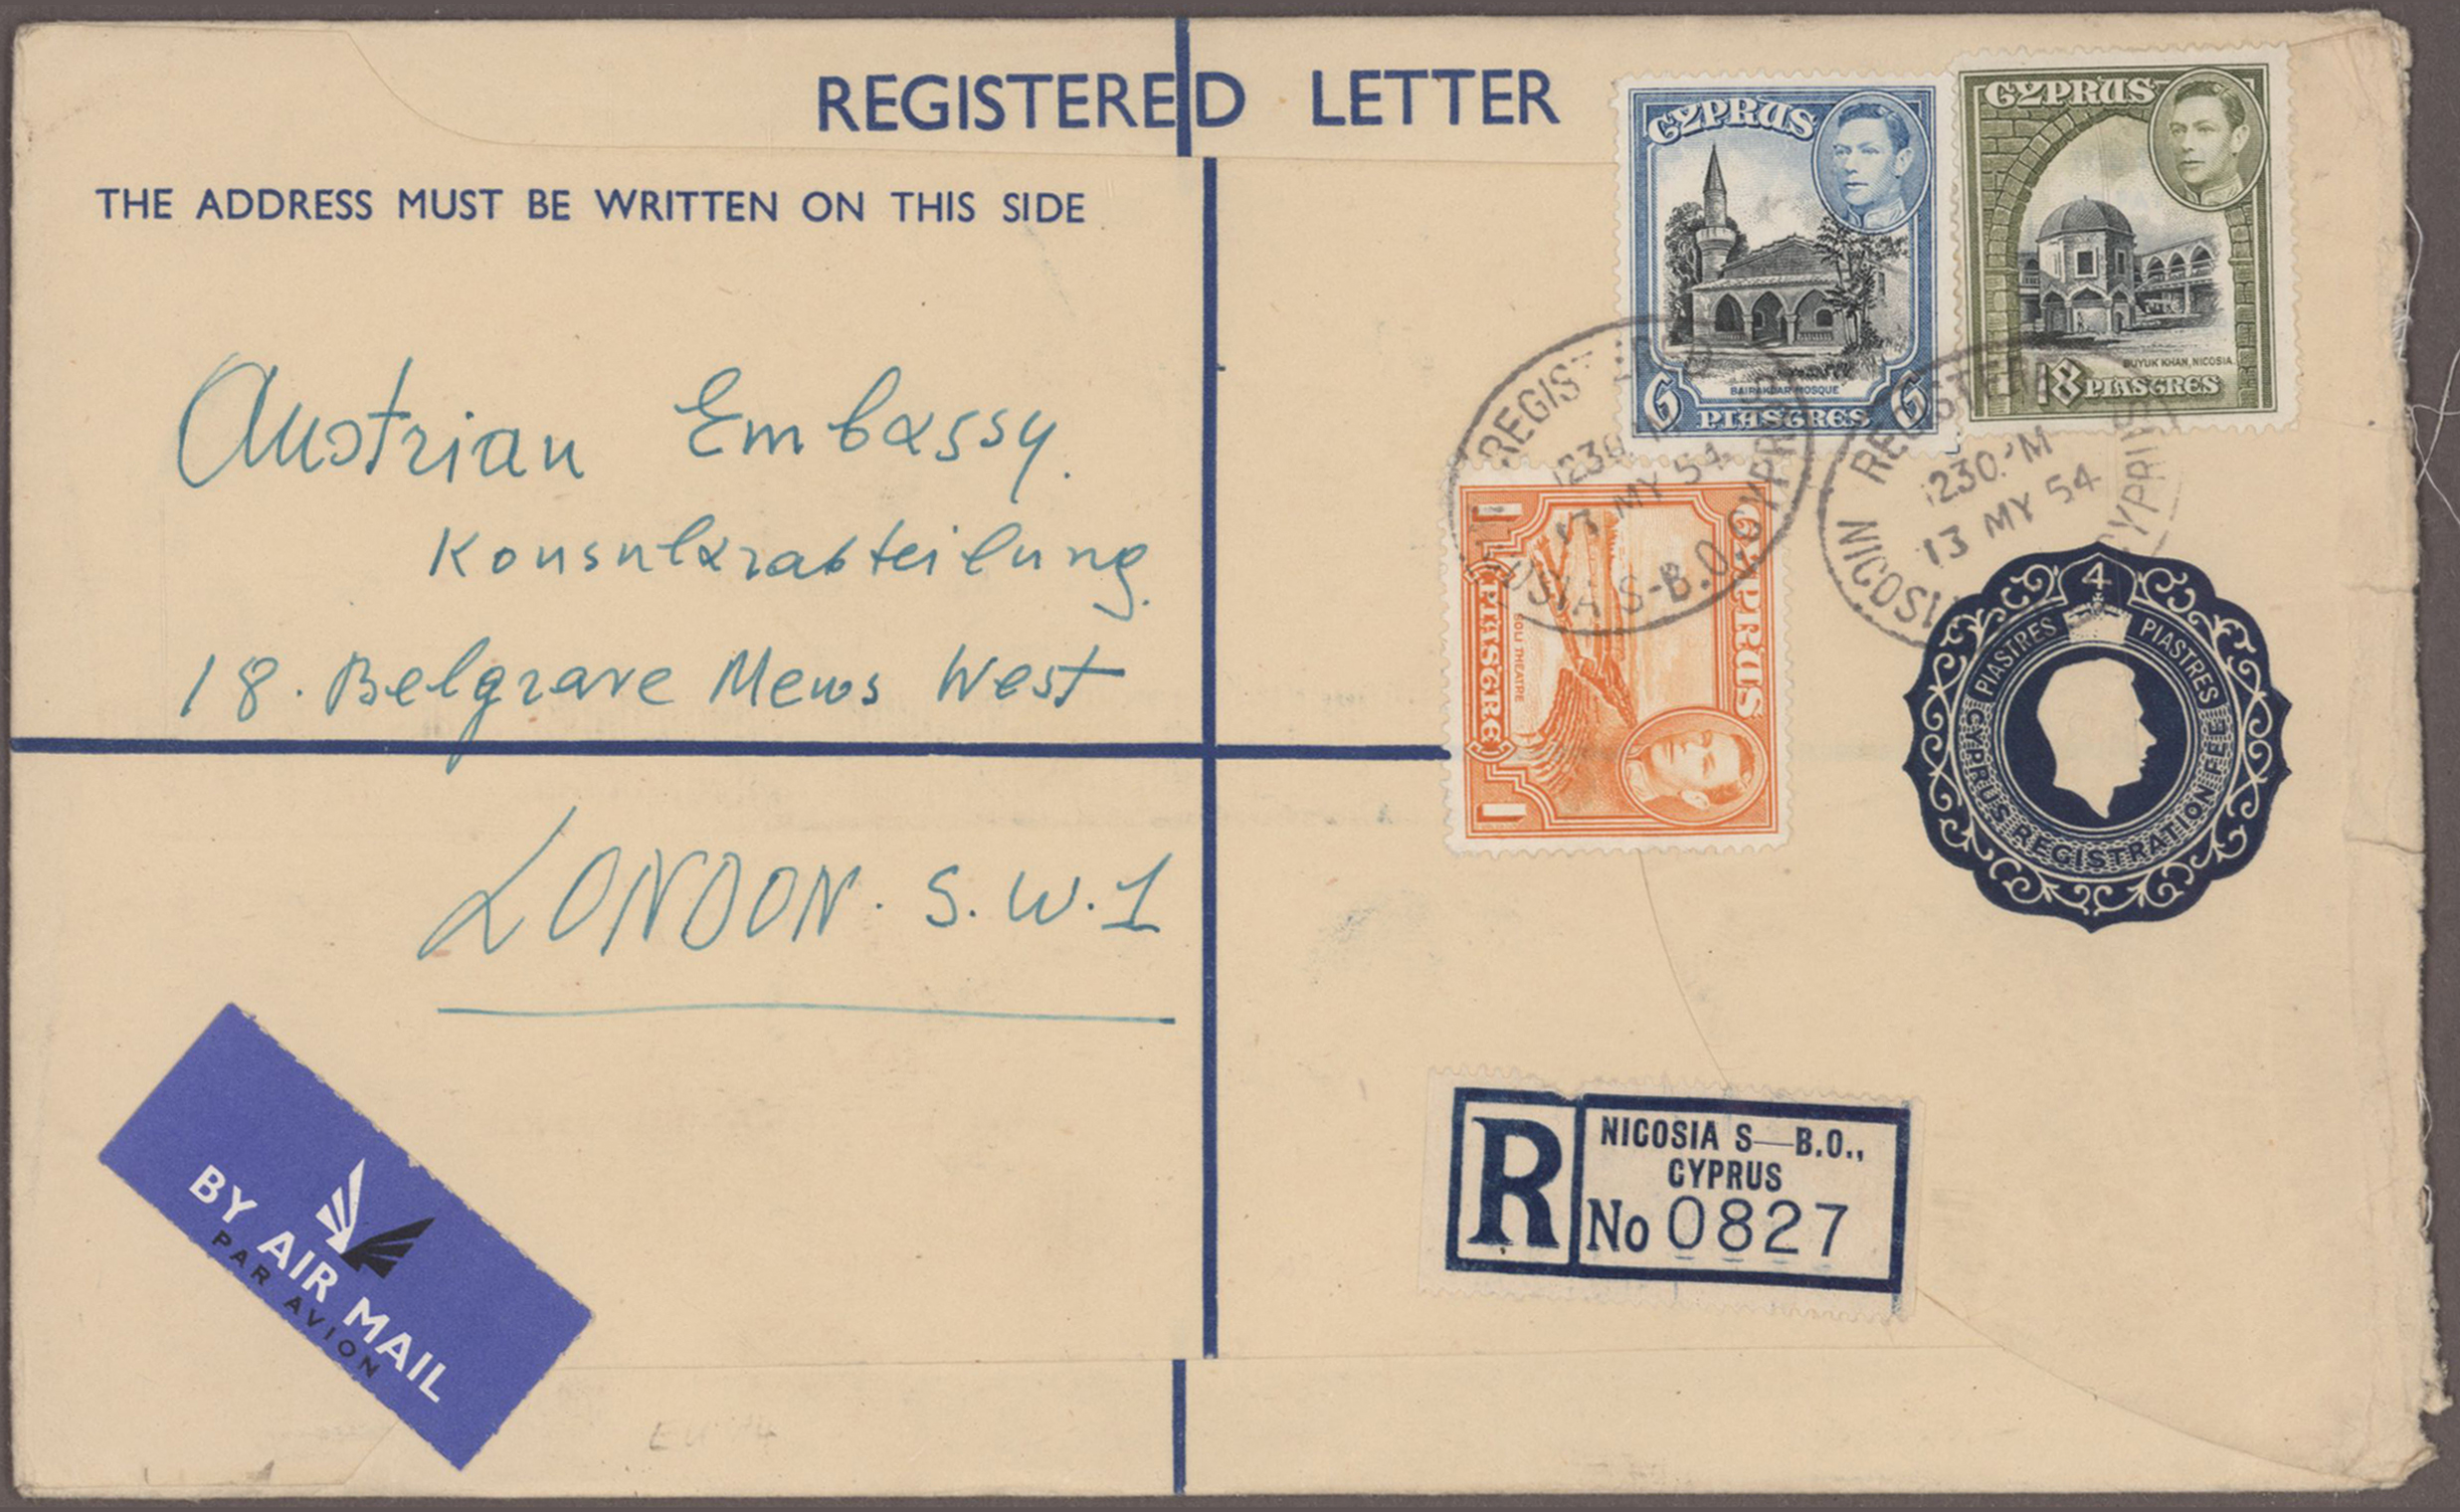 REGISTERED LETTER
THE ADDRESS MUST BE WRITTEN ON THIS SIDE
Austrian Embassy.
Konsularabteilung.
18. Belgrave Mews West
LONDON. S.W.1
BY AIR MAIL
PAR AVION
CYPRUS
BAIRAKDAR MOSQUE
6 PIASTRES 6
CYPRUS
BUYUK KHAN, NICOSIA.
18 PIASTRES
CYPRUS
SOLI THEATRE
1 PIASTRE 1
REGISTERED
1230 PM
13 MY 54
NICOSIA S-B.O. CYPRUS
REGISTERED
1230 PM
13 MY 54
NICOSIA CYPRUS
4
PIASTRES PIASTRES
CYPRUS REGISTRATION FEE
R
NICOSIA S—B.O.,
CYPRUS
No 0827